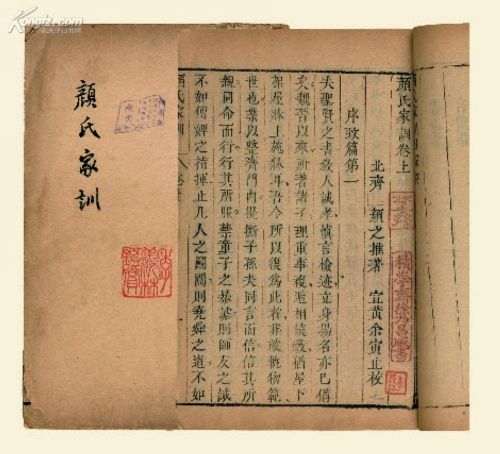 Kongfz.com
孔夫子旧书网
顏氏家訓
顏氏家訓卷上
北齊 顏之推著 宜黃余寅止校
序致篇第一
夫聖賢之書教人誠孝慎言檢迹立身揚名亦已備
矣魏晉以來所著諸子理重事複遞相模斆猶屋下
架屋牀上施牀耳吾今所以復爲此者非敢軌物範
世也業以整齊門內提撕子孫夫同言而信信其所
親同命而行行其所服禁童子之暴謔則師友之誡
不如傅婢之指揮止凡人之鬭鬩則堯舜之道不如
顏氏家訓